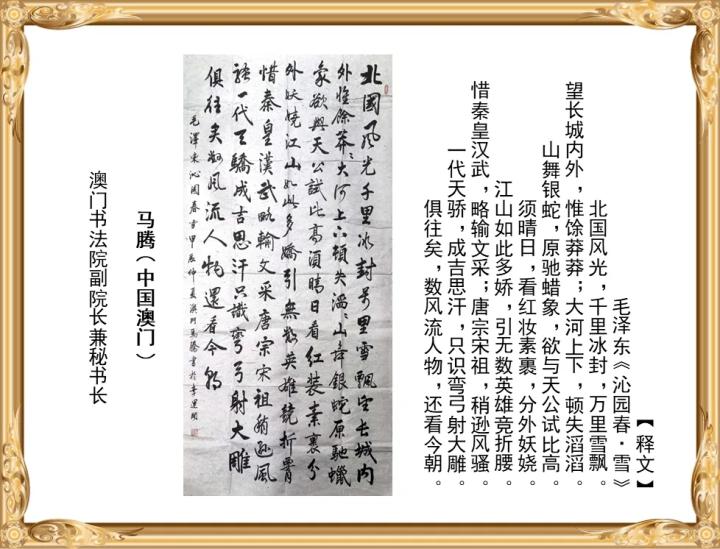 【释文】
毛泽东《沁园春·雪》
北国风光，千里冰封，万里雪飘。
望长城内外，惟馀莽莽；大河上下，顿失滔滔。
山舞银蛇，原驰蜡象，欲与天公试比高。
须晴日，看红妆素裹，分外妖娆。
江山如此多娇，引无数英雄竞折腰。
惜秦皇汉武，略输文采；唐宗宋祖，稍逊风骚。
一代天骄，成吉思汗，只识弯弓射大雕。
俱往矣，数风流人物，还看今朝。
北國风光千里冰封万里雪飄望长城内
外惟馀莽莽大河上下頓失滔滔山舞銀蛇原馳蠟
象欲與天公試比高須晴日看紅裝素裹分
外妖嬈江山如此多嬌引無數英雄競折腰
惜秦皇漢武略輸文采唐宗宋祖稍遜風
騷一代天驕成吉思汗只識彎弓射大雕
俱往矣數風流人物還看今朝
毛澤東沁園春雪甲辰仲夏
马腾（中国澳门）
澳门书法院副院长兼秘书长